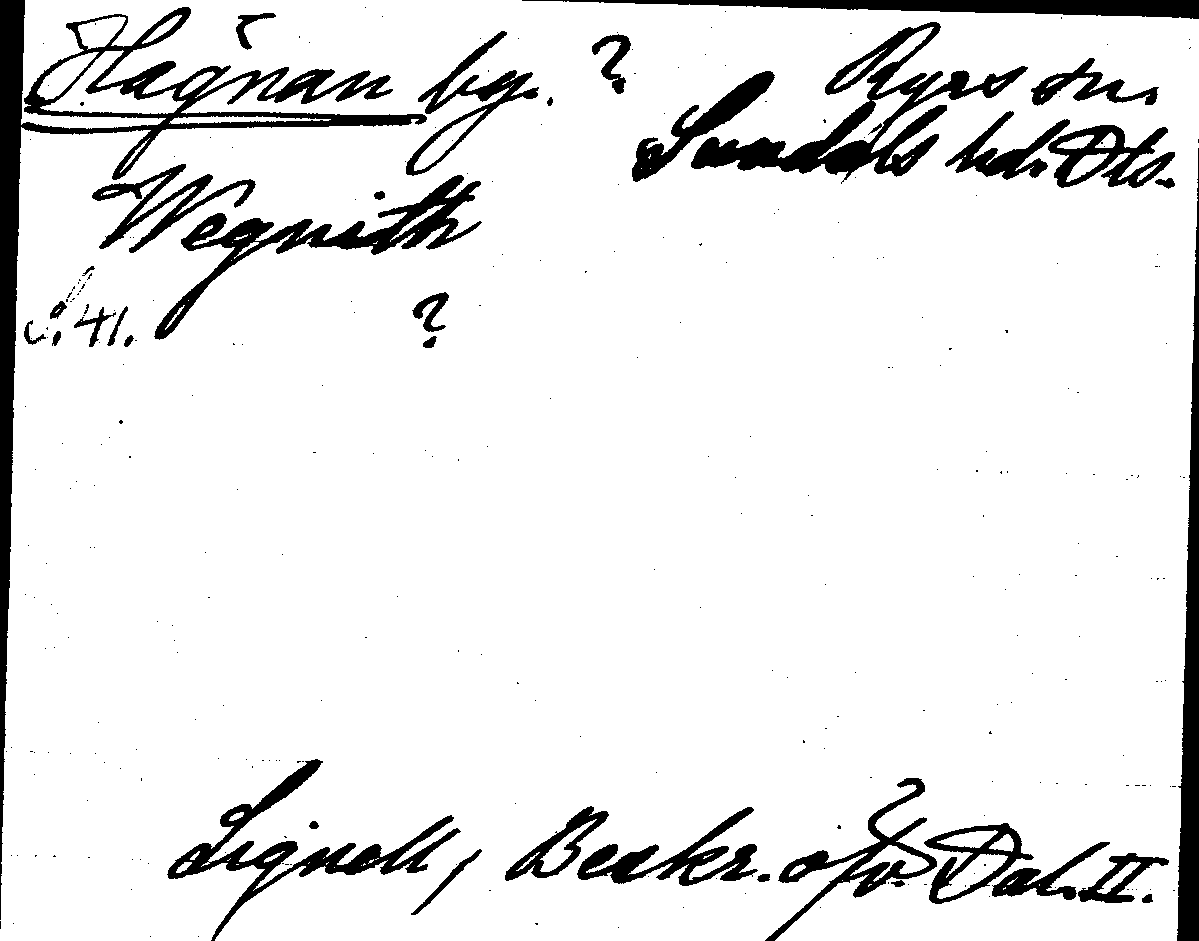 Hagnan by. ? Ryrs sn.
Sundals hd. Dls.
Wegnith
S. 41. ?
Lignell, Beskr. öfv. Dal. II.